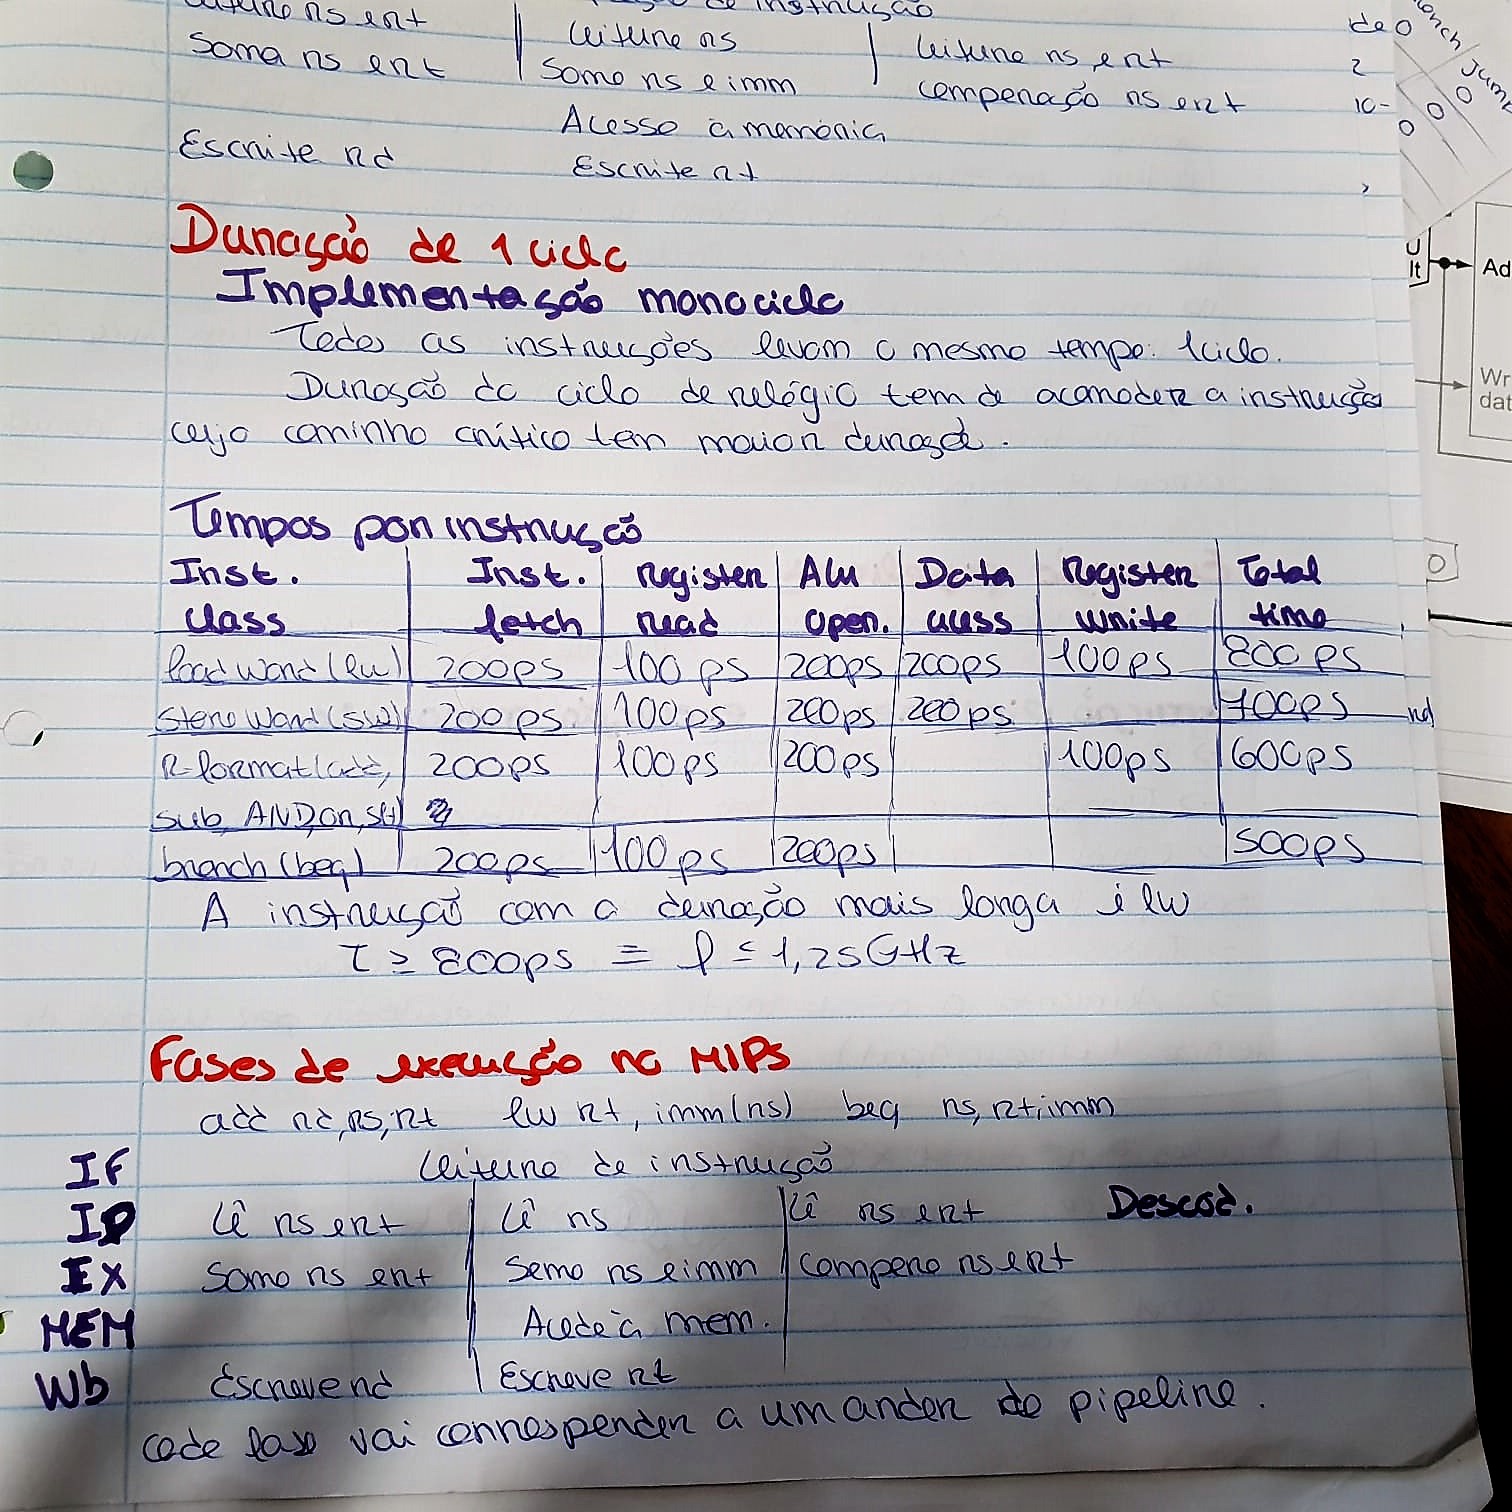 rs e rt
Soma rs e rt | Leitura rs | Leitura rs e rt
Soma rs e imm | Comparação rs e rt
Acesso à memória
Escrita rd
Escrita rt
Duração de 1 ciclo
Implementação monociclo
Todas as instruções levam o mesmo tempo: 1 ciclo.
Duração do ciclo de relógio tem de acomodar a instrução
cujo caminho crítico tem maior duração.
Tempos por instrução
Inst. | Inst. | Register | Alu | Data | Register | Total
class | fetch | read | oper. | access | write | time
load word (lw) | 200ps | 100ps | 200ps | 200ps | 100ps | 800ps
store word (sw) | 200ps | 100ps | 200ps | 200ps | | 700ps
R-format (add, | 200ps | 100ps | 200ps | | 100ps | 600ps
sub, AND, or, slt)
branch (beq) | 200ps | 100ps | 200ps | | | 500ps
A instrução com a duração mais longa é lw
T ≥ 800ps ≡ f ≤ 1,25GHz
Fases de execução no MIPS
add rd, rs, rt lw rt, imm(rs) beq rs, rt, imm
IF Leitura de instrução
ID Lê rs e rt | Lê rs | Lê rs e rt Descod.
EX Soma rs e rt | Soma rs e imm | Compara rs e rt
MEM Acede à mem.
Wb Escreve rd | Escreve rt
Cada fase vai corresponder a um andar do pipeline.
Jump
0
0
0
Ad
Wr
dat